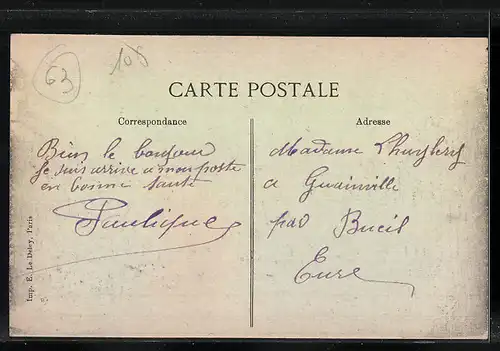 63
108
CARTE POSTALE
Correspondance
Adresse
Bien le bonjour
Je suis arrive a mon poste
en bonne santé
Madame
a Guainville
par Bueil
Eure
Imp. E. Le Deley, Paris